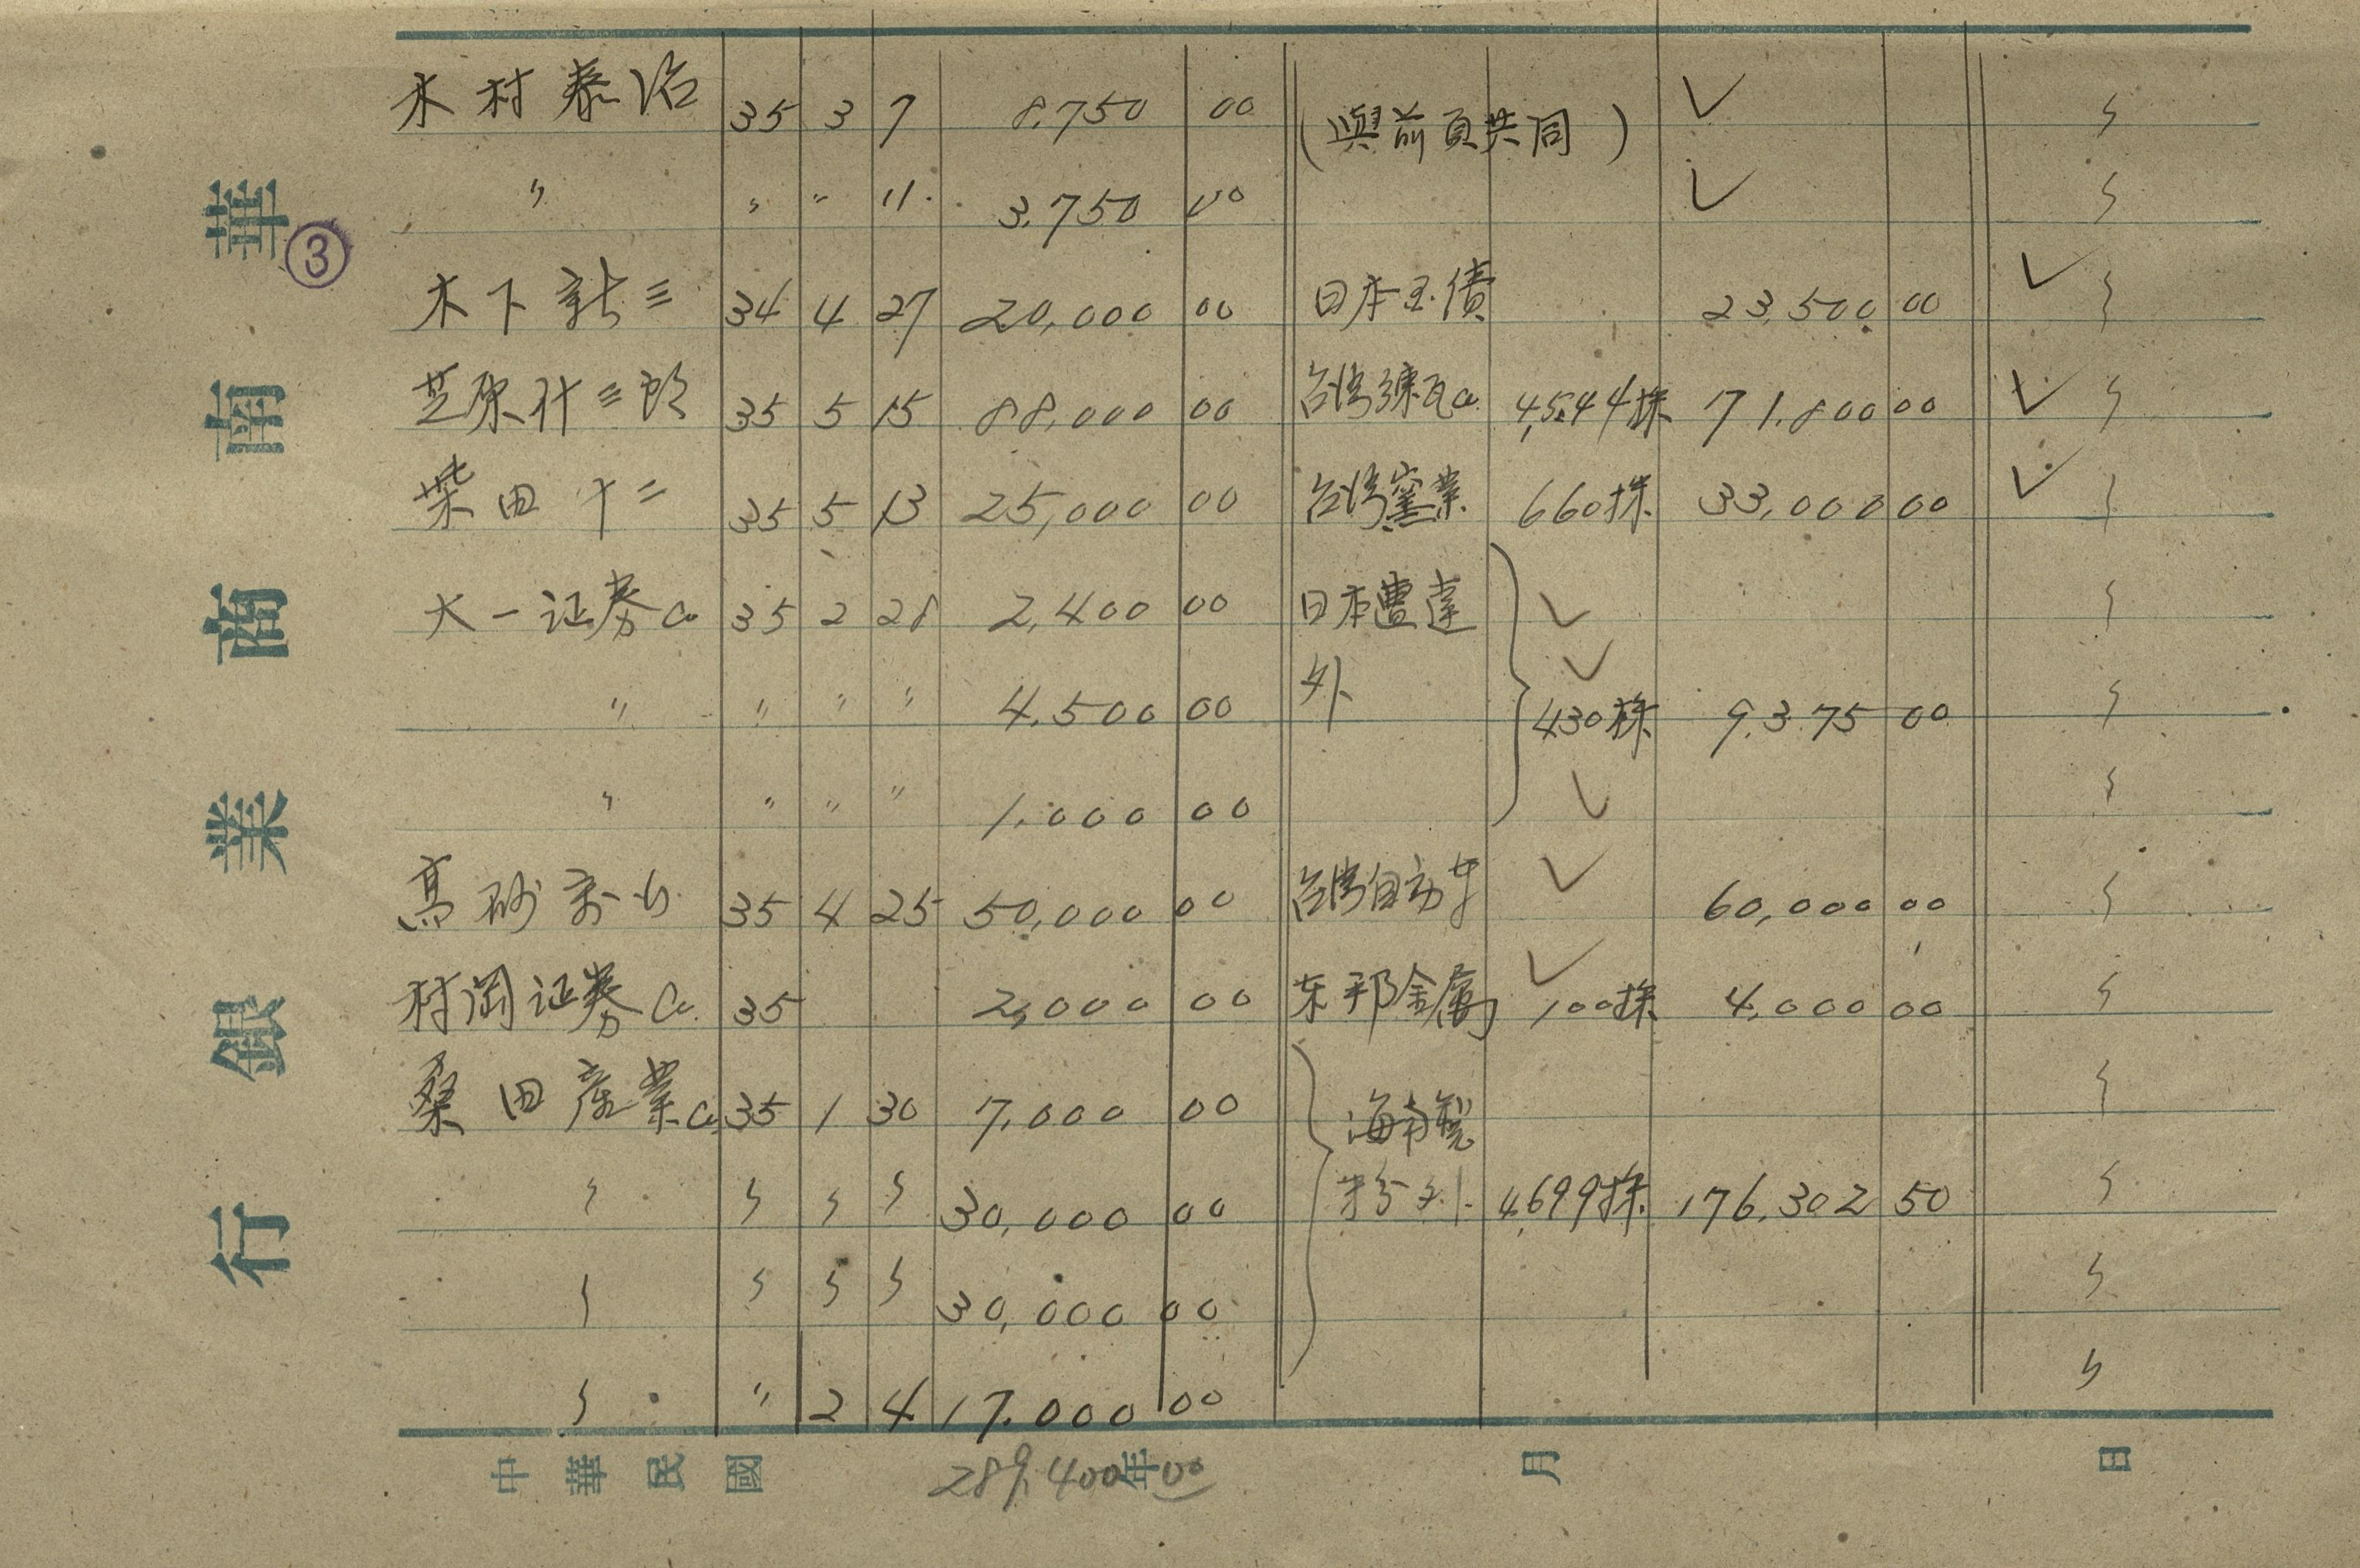 華南商業銀行
③
木村泰治 35 3 7 8,750 00 (與前頁共同) ✓ 〃
〃 〃 〃 11 3,750 00 ✓ 〃
木下新三 34 4 27 20,000 00 日本国債 23,500 00 ✓ 〃
芝原什三郎 35 5 15 88,000 00 台湾煉瓦Co. 4,544株 71,800 00 ✓ 〃
柴田十二 35 5 13 25,000 00 台湾窯業 660株 33,000 00 ✓ 〃
大一証券Co 35 2 28 2,400 00 日本曹達 ✓ 〃
〃 〃 〃 〃 4,500 00 外 ✓ 430株 9,375 00 〃
〃 〃 〃 〃 1,000 00 ✓ 〃
高砂 35 4 25 50,000 00 台湾自動車 ✓ 60,000 00 〃
村岡証券Co. 35 2,000 00 東邦金属 ✓ 100株 4,000 00 〃
桑田産業Co. 35 1 30 7,000 00 海南製 〃
〃 〃 〃 〃 30,000 00 粉外 4,699株 176,302 50 〃
〃 〃 〃 〃 30,000 00 〃
〃 〃 2 4 17,000 00 〃
289,400 00
中華民國 年 月 日